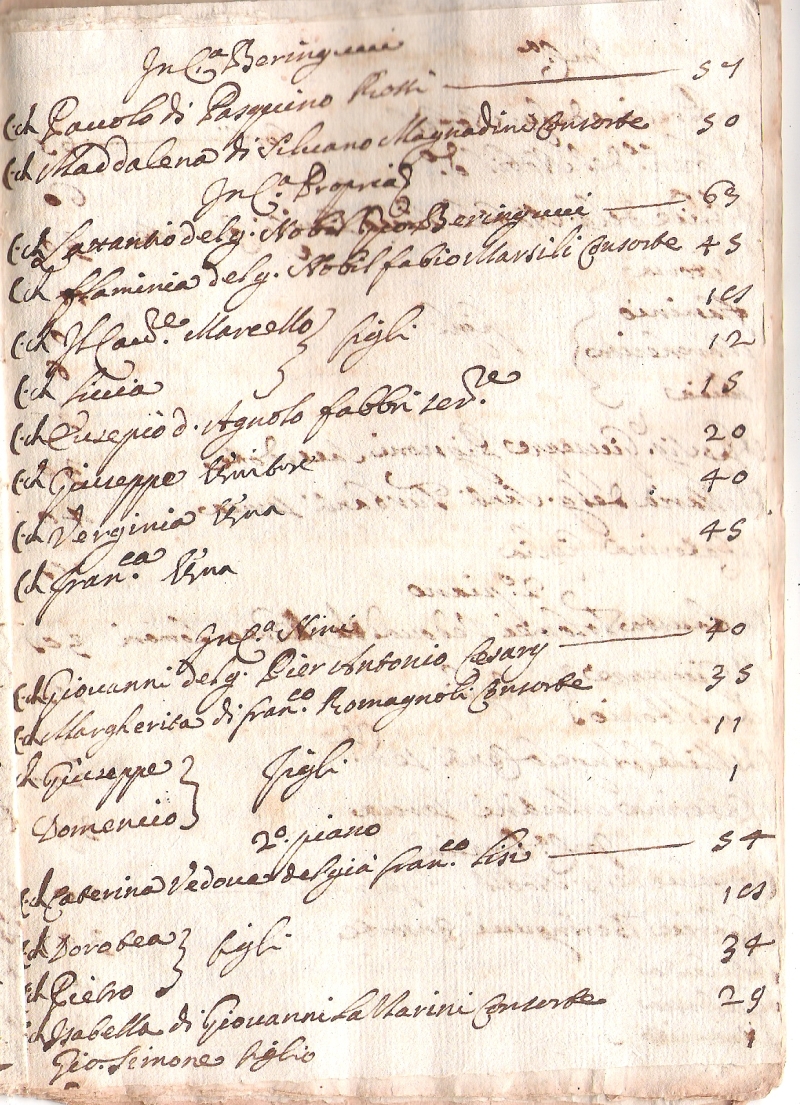 In C.ª Beringucci
C. ch Pauolo di Pasquino Rotti 57
C. ch Maddalena di Siluano Magnadini Consorte 50
In C.ª Propria
C. ch Lattantio del q. Nobil Beringucci 63
C. ch flaminia del q. Nobil fabio Marsili Consorte 45
C. ch Il Cau.e Marcello } figli 15
C. ch Liccia 12
C. ch Eusepio d. Agnolo fabbri ser.re 15
C. ch Giuseppe 20
C. ch Verginia 40
C. ch fran.ca 45
In C.ª Nini
C. ch Giovanni del q. Pier Antonio Cesarij 40
C. ch Margherita di fran.co Romagnoli Consorte 35
ch Giuseppe } figli 11
Domenico 1
2.º piano
C. ch Caterina Vedova del già fran.co Lisi 54
C. ch Dorotea } figli 15
ch Pietro 34
ch Isabella di Giovanni La Marini Consorte 29
Gio. Simone figlio 1